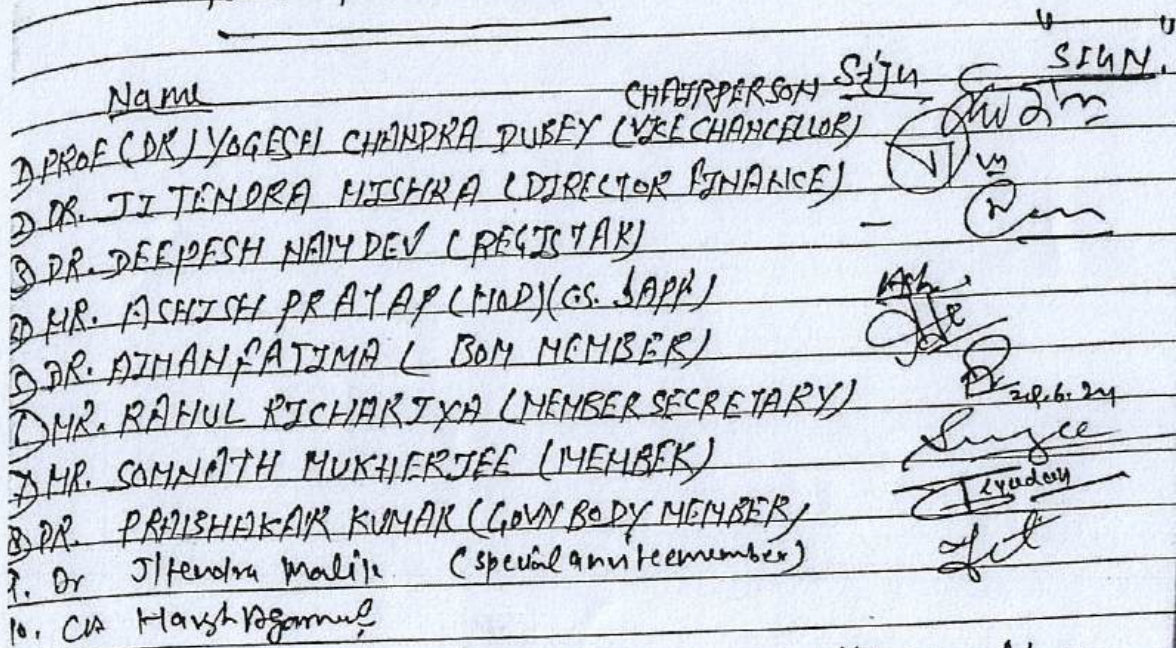 " "
Name CHAIRPERSON Sign SIGN.
1) PROF (DR) YOGESH CHANDRA DUBEY (VICE CHANCELLOR)
2) DR. JITENDRA MISHRA (DIRECTOR FINANCE)
3) DR. DEEPESH NAMDEV (REGISTAR)
4) MR. ASHISH PRATAP (HOD)
5) DR. AIMAN FATIMA ( BOM MEMBER)
6) MR. RAHUL RICHARIYA (MEMBER SECRETARY)
28.6.24
7) MR. SOMNATH MUKHERJEE (MEMBER)
8) DR. PRABHAKAR KUMAR (GOVN BODY MEMBER)
9. Dr Jitendra Malik (special annitee member)
10. CA Harsh Agarwal